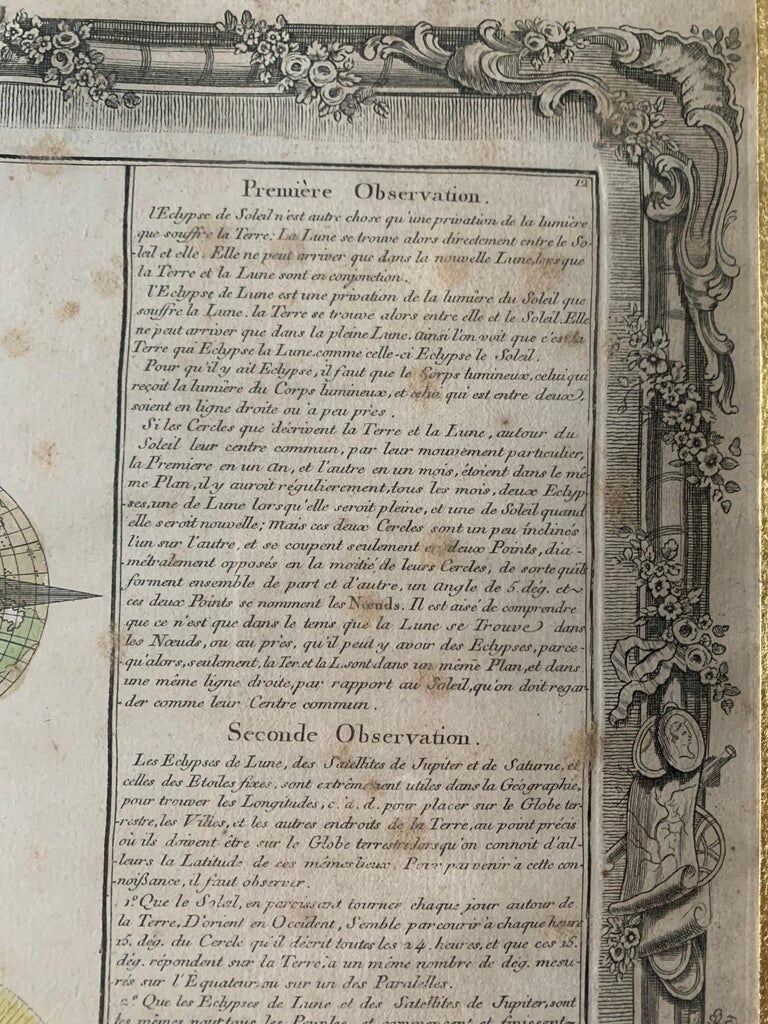 12
Première Observation.
l'Eclypse de Soleil n'est autre chose qu'une privation de la lumière
que souffre la Terre. La Lune se trouve alors directement entre le So-
-leil et elle. Elle ne peut arriver que dans la nouvelle Lune, lorsque
la Terre et la Lune sont en conjonction.
l'Eclypse de Lune est une privation de la lumière du Soleil que
souffre la Lune. la Terre se trouve alors entre elle et le Soleil. Elle
ne peut arriver que dans la pleine Lune. ainsi l'on voit que c'est la
Terre qui Eclypse la Lune. comme celle-ci Eclypse le Soleil.
Pour qu'il y ait Eclypse, il faut que le Corps lumineux, celui qui
reçoit la lumière du Corps lumineux, et celui qui est entre deux,
soient en ligne droite ou à peu près.
Si les Cercles que décrivent la Terre et la Lune, autour du
Soleil leur centre commun, par leur mouvement particulier,
la Premiere en un an, et l'autre en un mois, étoient dans le mê-
me Plan, il y auroit régulierement, tous les mois, deux Eclyp-
ses, une de Lune lorsqu'elle seroit pleine, et une de Soleil quand
elle seroit nouvelle; mais ces deux Cercles sont un peu inclinés
l'un sur l'autre, et se coupent seulement en deux Points, dia-
-métralement opposés en la moitié de leurs Cercles, de sorte qu'ils
forment ensemble de part et d'autre, un angle de 5. dég. et
ces deux Points se nomment les Nœuds. Il est aisé de comprendre
que ce n'est que dans le tems que la Lune se Trouve dans
les Nœuds, ou au près, qu'il peut y avoir des Eclypses, parce-
-qu'alors, seulement, la Ter. et la L. sont dans un même Plan, et dans
une même ligne droite, par rapport au Soleil, qu'on doit regar-
-der comme leur Centre commun.
Seconde Observation.
Les Eclypses de Lune, des Satellites de Jupiter et de Saturne, et
celles des Etoiles fixes, sont extrêmement utiles dans la Géographie,
pour trouver les Longitudes, c. a. d. pour placer sur le Globe ter-
-restre, les Villes, et les autres endroits de la Terre, au point précis
où ils doivent être sur le Globe terrestre, lorsqu'on connoit d'ail-
-leurs la Latitude de ces mêmes lieux. Pour parvenir à cette con-
-noißance, il faut observer.
1º Que le Soleil, en paroissant tourner chaque jour autour de
la Terre, D'orient en Occident, Semble parcourir à chaque heure
15. dég. du Cercle qu'il décrit toutes les 24. heures, et que ces 15.
dég. répondent sur la Terre, à un même nombre de dég. mesu-
rés sur l'Équateur, ou sur un des Paralelles.
2º Que les Eclypses de Lune et des Satellites de Jupiter, sont
les mêmes pour tous les Peuples, et commencent et finissent